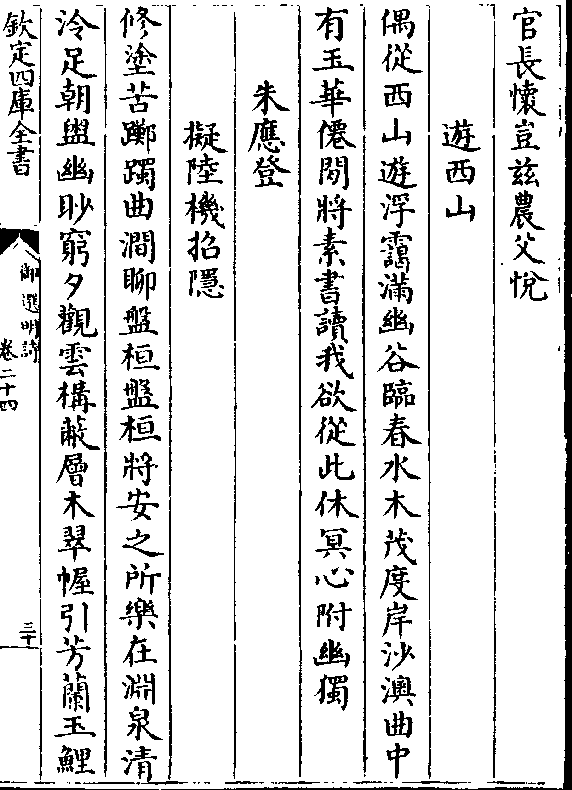 官長懷豈兹農父悅
遊西山
偶從西山遊浮靄滿幽谷臨春水木茂度岸沙澳曲中
有玉華僊閒將素書讀我欲從此休冥心附幽獨
朱應登
擬陸機招隱
修塗苦躑躅曲澗聊盤桓盤桓將安之所樂在淵泉清
泠足朝盥幽眇窮夕觀雲構蔽層木翠幄引芳蘭玉鯉
欽定四庫全書
御選明詩
卷二十四
三十